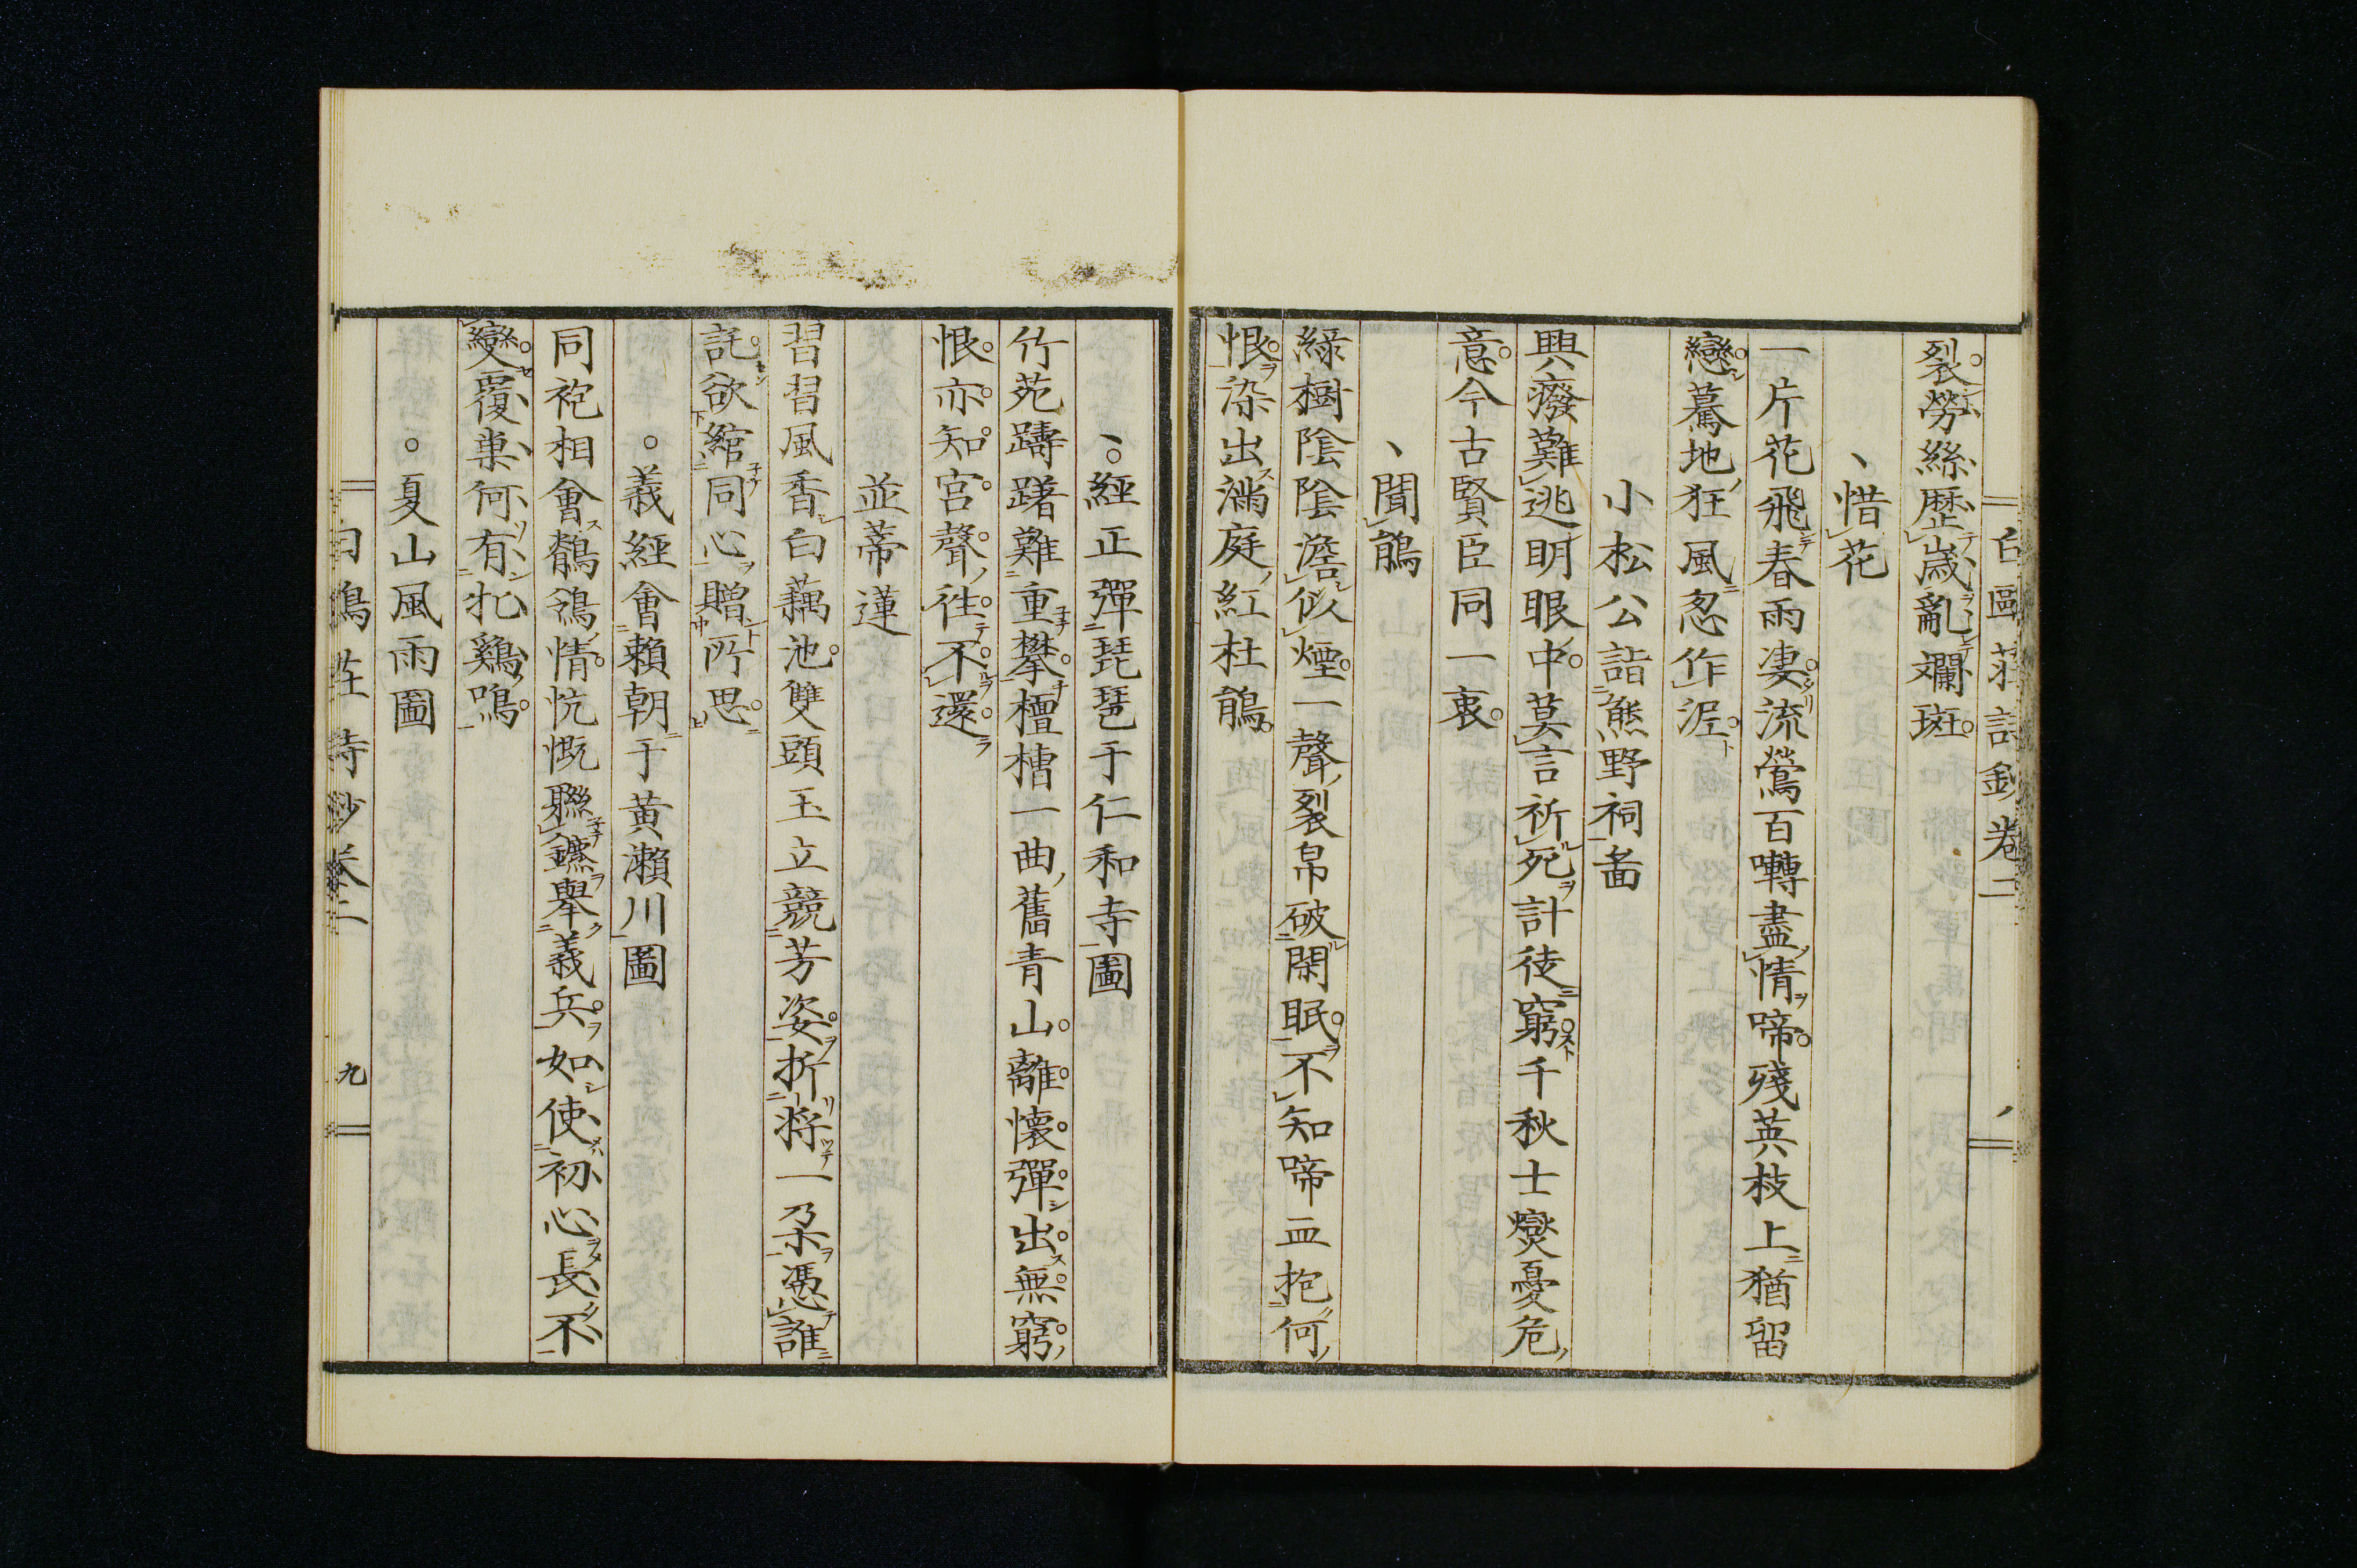 白鷗莊詩鈔卷二
裂勞絲歷歲亂斕斑
惜花
一片花飛春雨凄流鶯百囀盡情啼殘英枝上猶留
戀驀地狂風忍作泥
小松公詣熊野祠啚
興癈難逃明眼中莫言祈死計徒窮千秋士燮憂危
意今古賢臣同一衷
聞鵑
綠樹陰陰澹似煙一聲裂帛破閑眠不知啼血抱何
恨染出滿庭紅杜鵑
經正彈琵琶于仁和寺圖
竹苑躊躇難重攀檀槽一曲舊青山離懷彈出無窮
恨亦知宮聲往不還
並蒂蓮
習習風香白藕池雙頭玉立競芳姿折將一朶憑誰
託欲綰同心贈所思
義經會賴朝于黃瀨川圖
同袍相會鶺鴒情忼慨聯鑣舉義兵如使初心長不
變覆巢何有牝鷄鳴
夏山風雨圖
白鷗莊詩鈔卷二 九